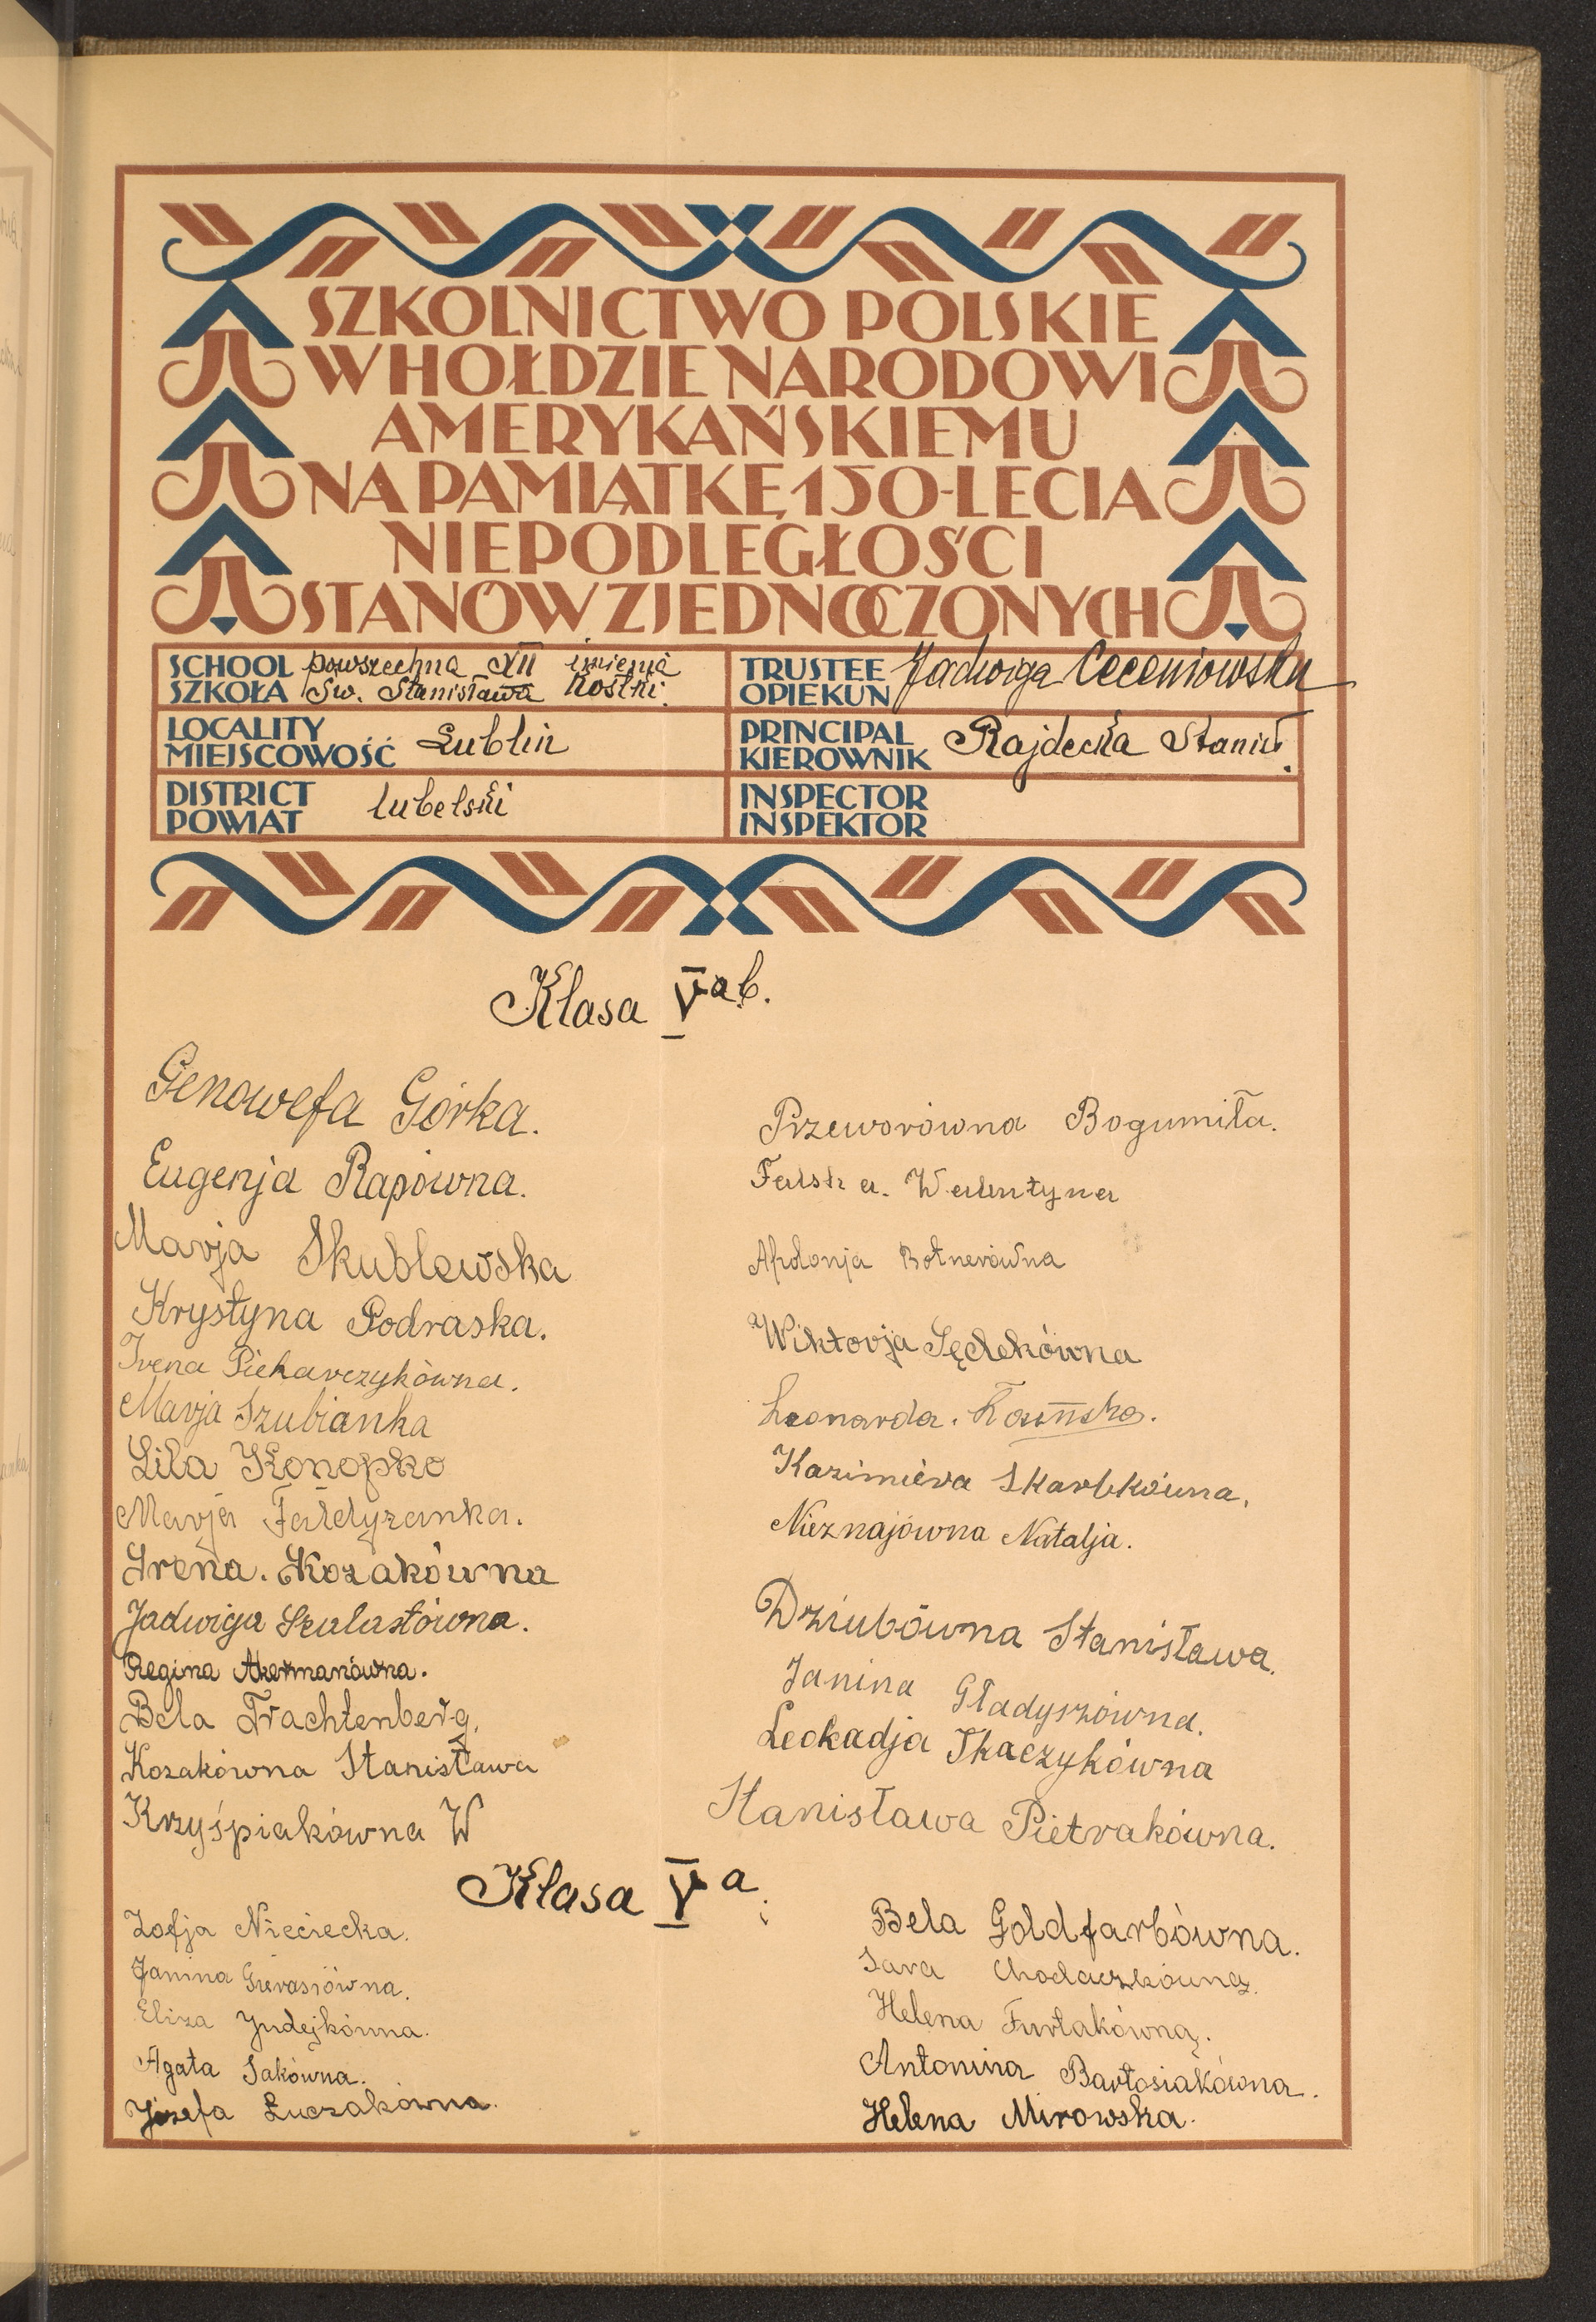 SZKOLNICTWO POLSKIE
W HOŁDZIE NARODOWI
AMERYKAŃSKIEMU
NA PAMIĄTKĘ 150-LECIA
NIEPODLEGŁOŚCI
STANÓW ZJEDNOCZONYCH
SCHOOL powszechna XII imienia
SZKOŁA Św. Stanisława Kostki.
TRUSTEE OPIEKUN Jadwiga
LOCALITY
MIEJSCOWOŚĆ Lublin
PRINCIPAL
KIEROWNIK Rajdecka Stanisł.
DISTRICT
POWIAT lubelski
INSPECTOR
INSPEKTOR
Klasa V a b.
Genowefa Górka.
Eugenja Rapówna.
Marja Skublewska
Krystyna Podraska.
Irena Piekarczykówna.
Marja Szubianka
Lila Konopko
Marja Fałdyzanka.
Irena. Kozakówna
Jadwiga Szalastówna.
Regina Akermanówna.
Bela Trachtenberg.
Kozakówna Stanisława
Krzyśpiakówna W
Przeworówna Bogumiła.
Falska. Walentyna
Apolonja Botnerówna
Wiktorja Sędekówna
Leonarda.
Kazimiera Skarbkówna.
Nieznajówna Natalja.
Dziubówna Stanisława.
Janina Gładyszówna.
Leokadja Tkaczykówna
Stanisława Pietrakówna.
Klasa V a
Zofja Nieciecka.
Janina Gierasiówna.
Eliza Judejkówna.
Agata Sakówna.
Józefa Łuczakówna.
Bela Goldfarbówna.
Sara Chodaczkówna.
Helena Furtakówna.
Antonina Bartosiakówna.
Helena Mirowska.